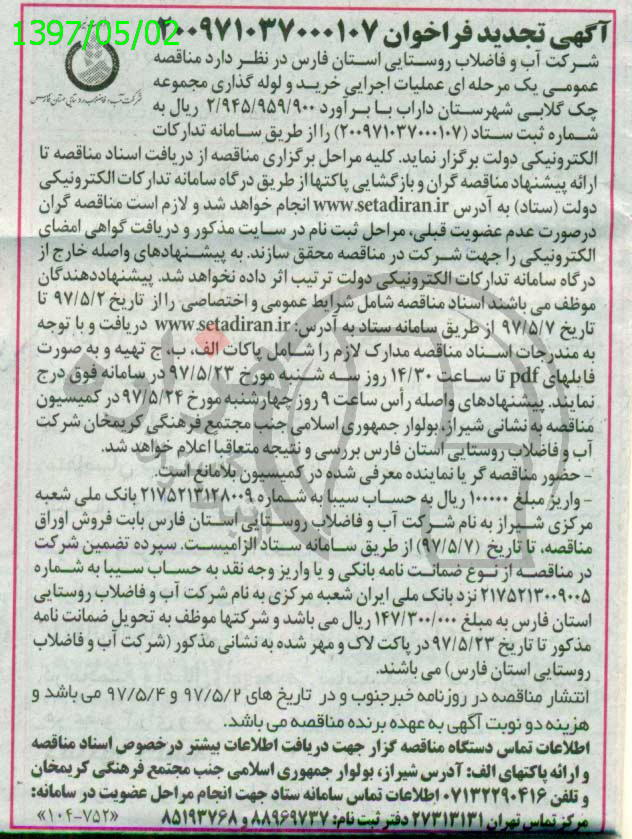 1397/05/02
آگهی تجدید فراخوان ۲۰۰۹۷۱۰۳۷۰۰۰۱۰۷
شرکت آب و فاضلاب روستایی استان فارس در نظر دارد مناقصه
عمومی یک مرحله ای عملیات اجرایی خرید و لوله گذاری مجموعه
شرکت آب و فاضلاب روستایی استان فارس
چک گلابی شهرستان داراب با برآورد ۲/۹۴۵/۹۵۹/۹۰۰ ریال به
شماره ثبت ستاد (۲۰۰۹۷۱۰۳۷۰۰۰۱۰۷) را از طریق سامانه تدارکات
الکترونیکی دولت برگزار نماید. کلیه مراحل برگزاری مناقصه از دریافت اسناد مناقصه تا
ارائه پیشنهاد مناقصه گران و بازگشایی پاکتها از طریق درگاه سامانه تدارکات الکترونیکی
دولت (ستاد) به آدرس www.setadiran.ir انجام خواهد شد و لازم است مناقصه گران
درصورت عدم عضویت قبلی، مراحل ثبت نام در سایت مذکور و دریافت گواهی امضای
الکترونیکی را جهت شرکت در مناقصه محقق سازند. به پیشنهادهای واصله خارج از
درگاه سامانه تدارکات الکترونیکی دولت ترتیب اثر داده نخواهد شد. پیشنهاددهندگان
موظف می باشند اسناد مناقصه شامل شرایط عمومی و اختصاصی را از تاریخ ۹۷/۵/۲ تا
تاریخ ۹۷/۵/۷ از طریق سامانه ستاد به آدرس: www.setadiran.ir دریافت و با توجه
به مندرجات اسناد مناقصه مدارک لازم را شامل پاکات الف، ب، ج تهیه و به صورت
فایلهای pdf تا ساعت ۱۴/۳۰ روز سه شنبه مورخ ۹۷/۵/۲۳ در سامانه فوق درج
نمایند. پیشنهادهای واصله رأس ساعت ۹ روز چهارشنبه مورخ ۹۷/۵/۲۴ در کمیسیون
مناقصه به نشانی شیراز، بولوار جمهوری اسلامی جنب مجتمع فرهنگی کریمخان شرکت
آب و فاضلاب روستایی استان فارس بررسی و نتیجه متعاقبا اعلام خواهد شد.
- حضور مناقصه گر یا نماینده معرفی شده در کمیسیون بلامانع است.
- واریز مبلغ ۱۰۰۰۰۰ ریال به حساب سیبا به شماره ۲۱۷۵۲۱۳۱۲۸۰۰۹ بانک ملی شعبه
مرکزی شیراز به نام شرکت آب و فاضلاب روستایی استان فارس بابت فروش اوراق
مناقصه، تا تاریخ (۹۷/۵/۷) از طریق سامانه ستاد الزامیست. سپرده تضمین شرکت
در مناقصه از نوع ضمانت نامه بانکی و یا واریز وجه نقد به حساب سیبا به شماره
۲۱۷۵۲۱۳۰۰۹۰۰۵ نزد بانک ملی ایران شعبه مرکزی به نام شرکت آب و فاضلاب روستایی
استان فارس به مبلغ ۱۴۷/۳۰۰/۰۰۰ ریال می باشد و شرکتها موظف به تحویل ضمانت نامه
مذکور تا تاریخ ۹۷/۵/۲۳ در پاکت لاک و مهر شده به نشانی مذکور (شرکت آب و فاضلاب
روستایی استان فارس) می باشند.
انتشار مناقصه در روزنامه خبرجنوب و در تاریخ های ۹۷/۵/۲ و ۹۷/۵/۴ می باشد و
هزینه دو نوبت آگهی به عهده برنده مناقصه می باشد.
اطلاعات تماس دستگاه مناقصه گزار جهت دریافت اطلاعات بیشتر درخصوص اسناد مناقصه
و ارائه پاکتهای الف: آدرس شیراز، بولوار جمهوری اسلامی جنب مجتمع فرهنگی کریمخان
و تلفن ۰۷۱۳۲۲۹۰۴۱۶ اطلاعات تماس سامانه ستاد جهت انجام مراحل عضویت در سامانه:
مرکز تماس تهران ۲۷۳۱۳۱۳۱ دفتر ثبت نام: ۸۸۹۶۹۷۳۷ و ۸۵۱۹۳۷۶۸ «۱۰۴-۷۵۲»